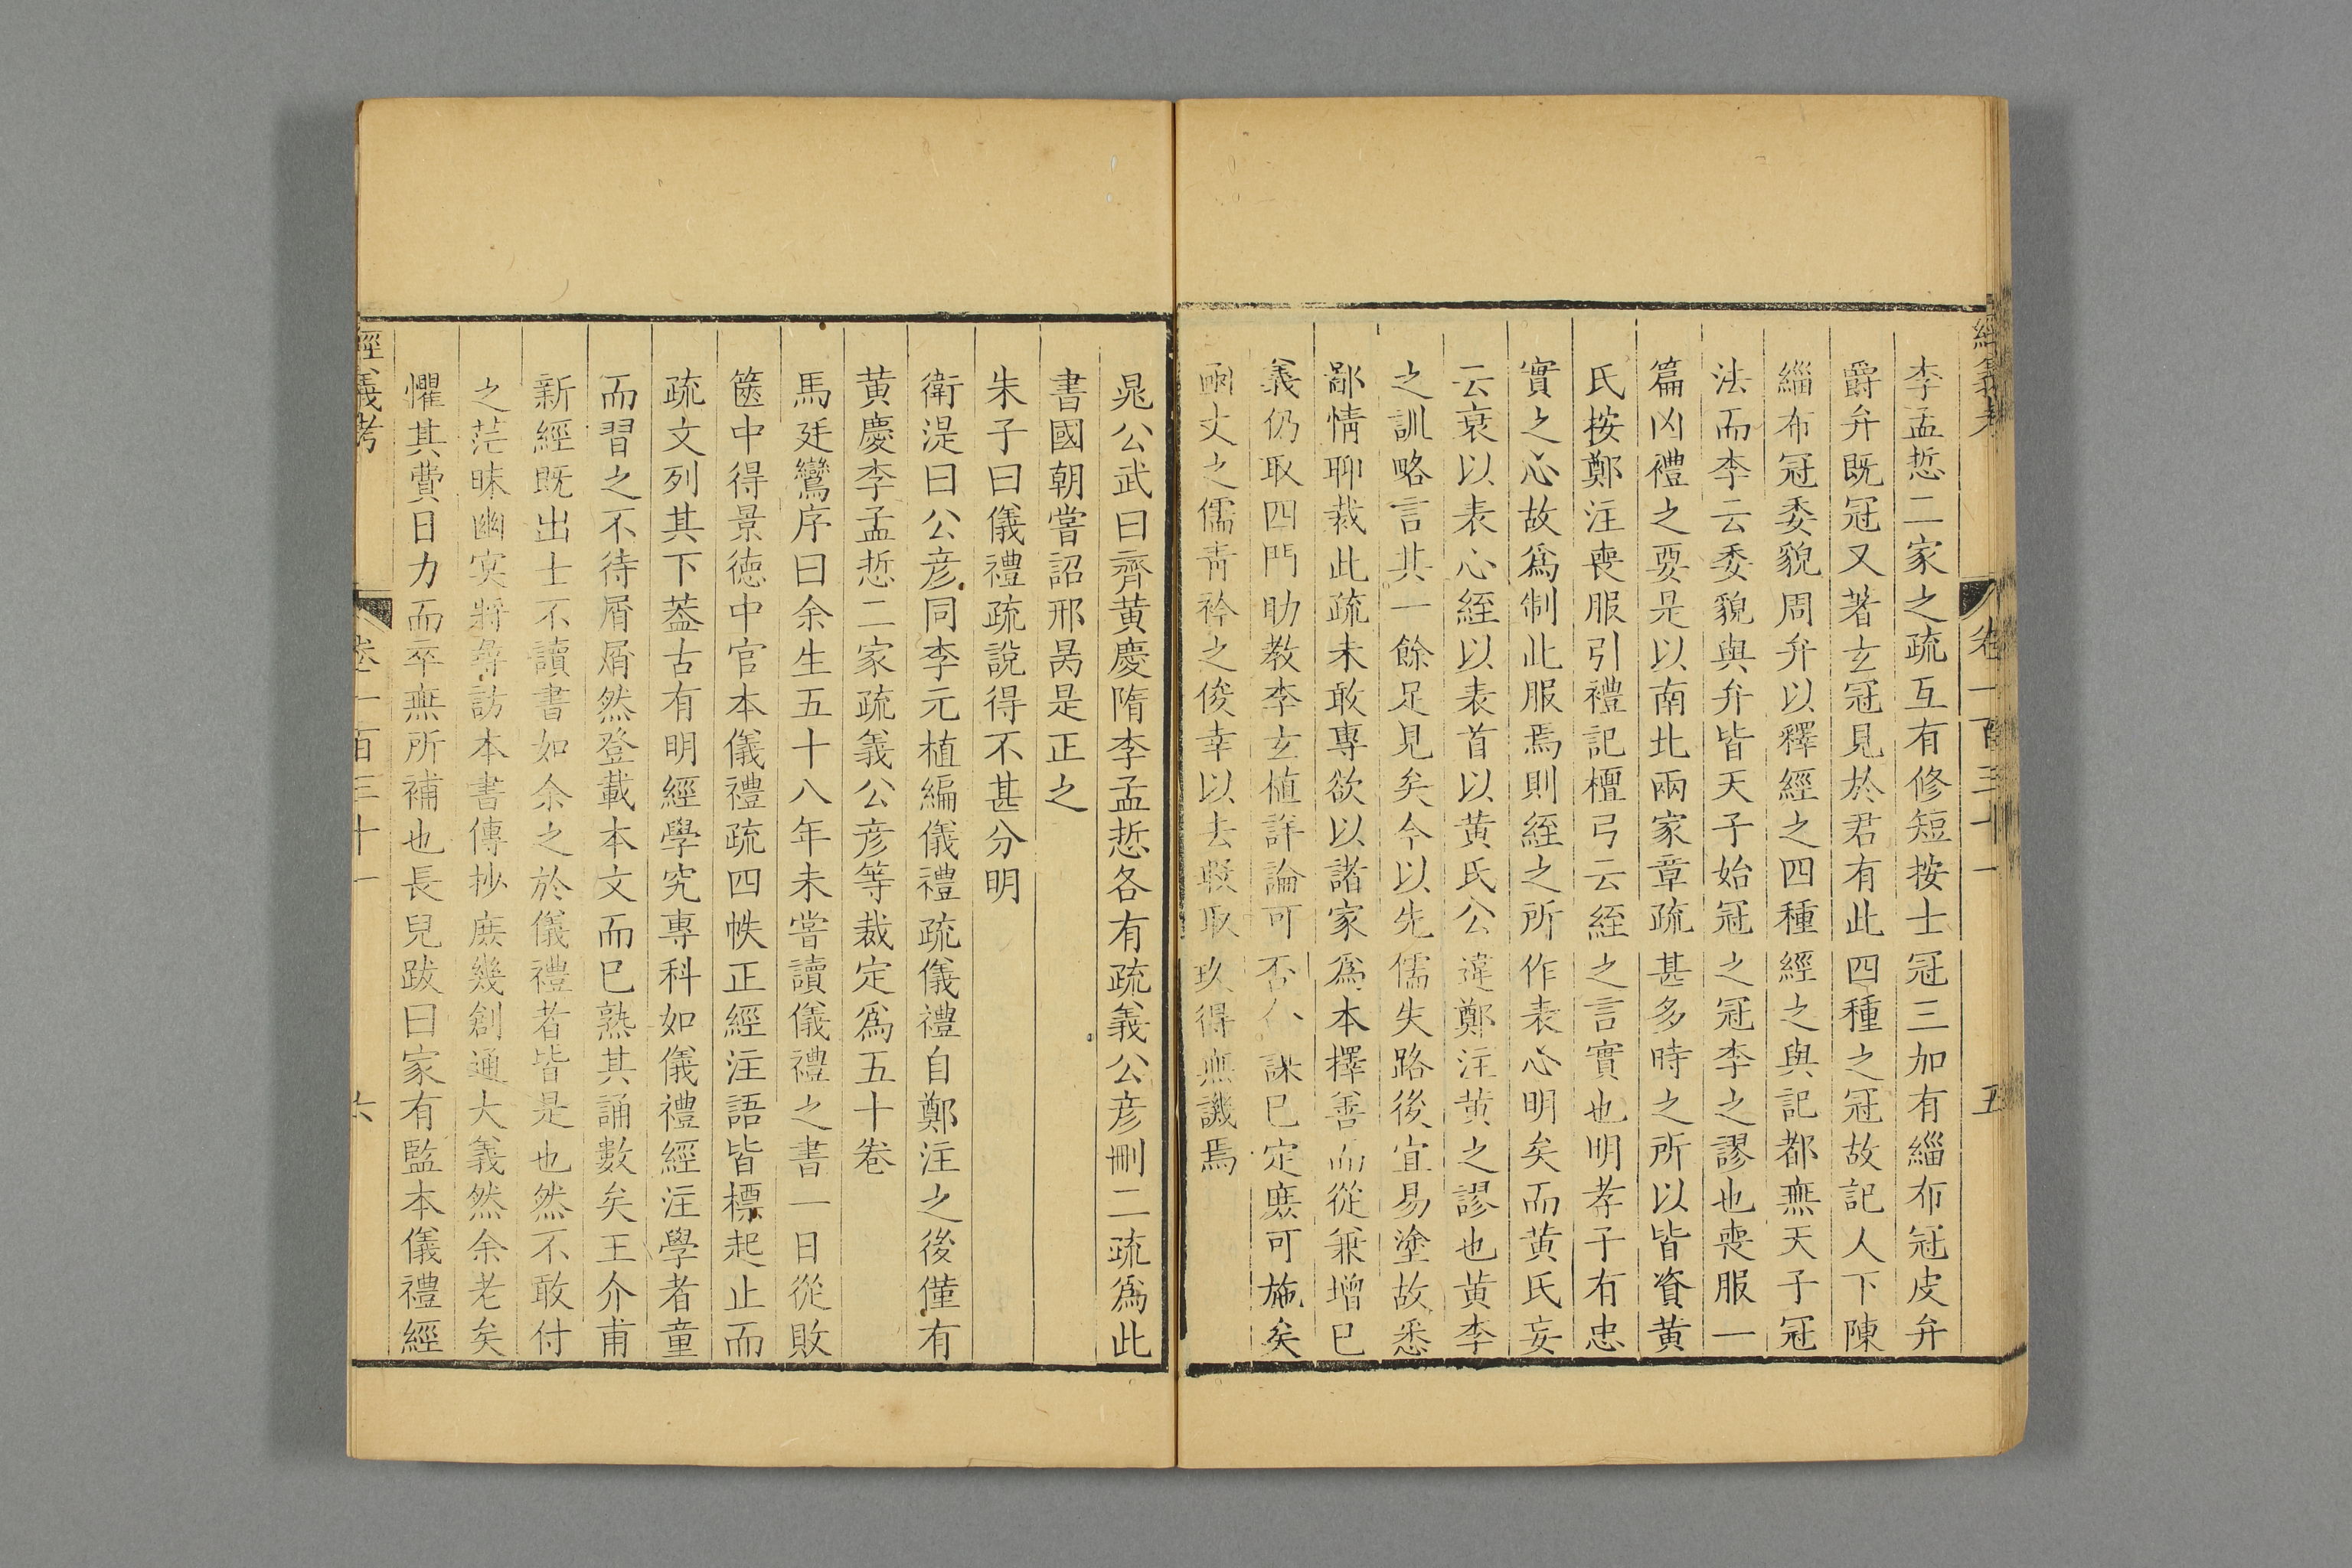 經義考
卷一百三十一
五
李孟悊二家之疏互有修短按士冠三加有緇布冠皮弁
爵弁既冠又著玄冠見於君有此四種之冠故記人下陳
緇布冠委貌周弁以釋經之四種經之與記都無天子冠
法而李云委貌與弁皆天子始冠之冠李之謬也喪服一
篇凶禮之要是以南北兩家章疏甚多時之所以皆資黃
氏按鄭注喪服引禮記檀弓云絰之言實也明孝子有忠
實之心故爲制此服焉則絰之所作表心明矣而黃氏妄
云衰以表心絰以表首以黃氏公違鄭注黃之謬也黃李
之訓略言其一餘足見矣今以先儒失路後宜易塗故悉
鄙情聊裁此疏未敢專欲以諸家爲本擇善而從兼增已
義仍取四門助教李玄植詳論可否僉謀已定庶可施矣
函丈之儒青衿之俊幸以去瑕取玖得無譏焉
晁公武曰齊黃慶隋李孟悊各有疏義公彦刪二疏爲此
書國朝嘗詔邢昺是正之
朱子曰儀禮疏說得不甚分明
衛湜曰公彦同李元植編儀禮疏儀禮自鄭注之後僅有
黃慶李孟悊二家疏義公彦等裁定爲五十卷
馬廷鸞序曰余生五十八年未嘗讀儀禮之書一日從敗
篋中得景德中官本儀禮疏四帙正經注語皆標起止而
疏文列其下葢古有明經學究專科如儀禮經注學者童
而習之不待屑屑然登載本文而已熟其誦數矣王介甫
新經既出士不讀書如余之於儀禮者皆是也然不敢付
之茫昧幽冥將尋訪本書傳抄庶幾創通大義然余老矣
懼其費日力而卒無所補也長兒跋曰家有監本儀禮經
經義考
卷一百三十一
六